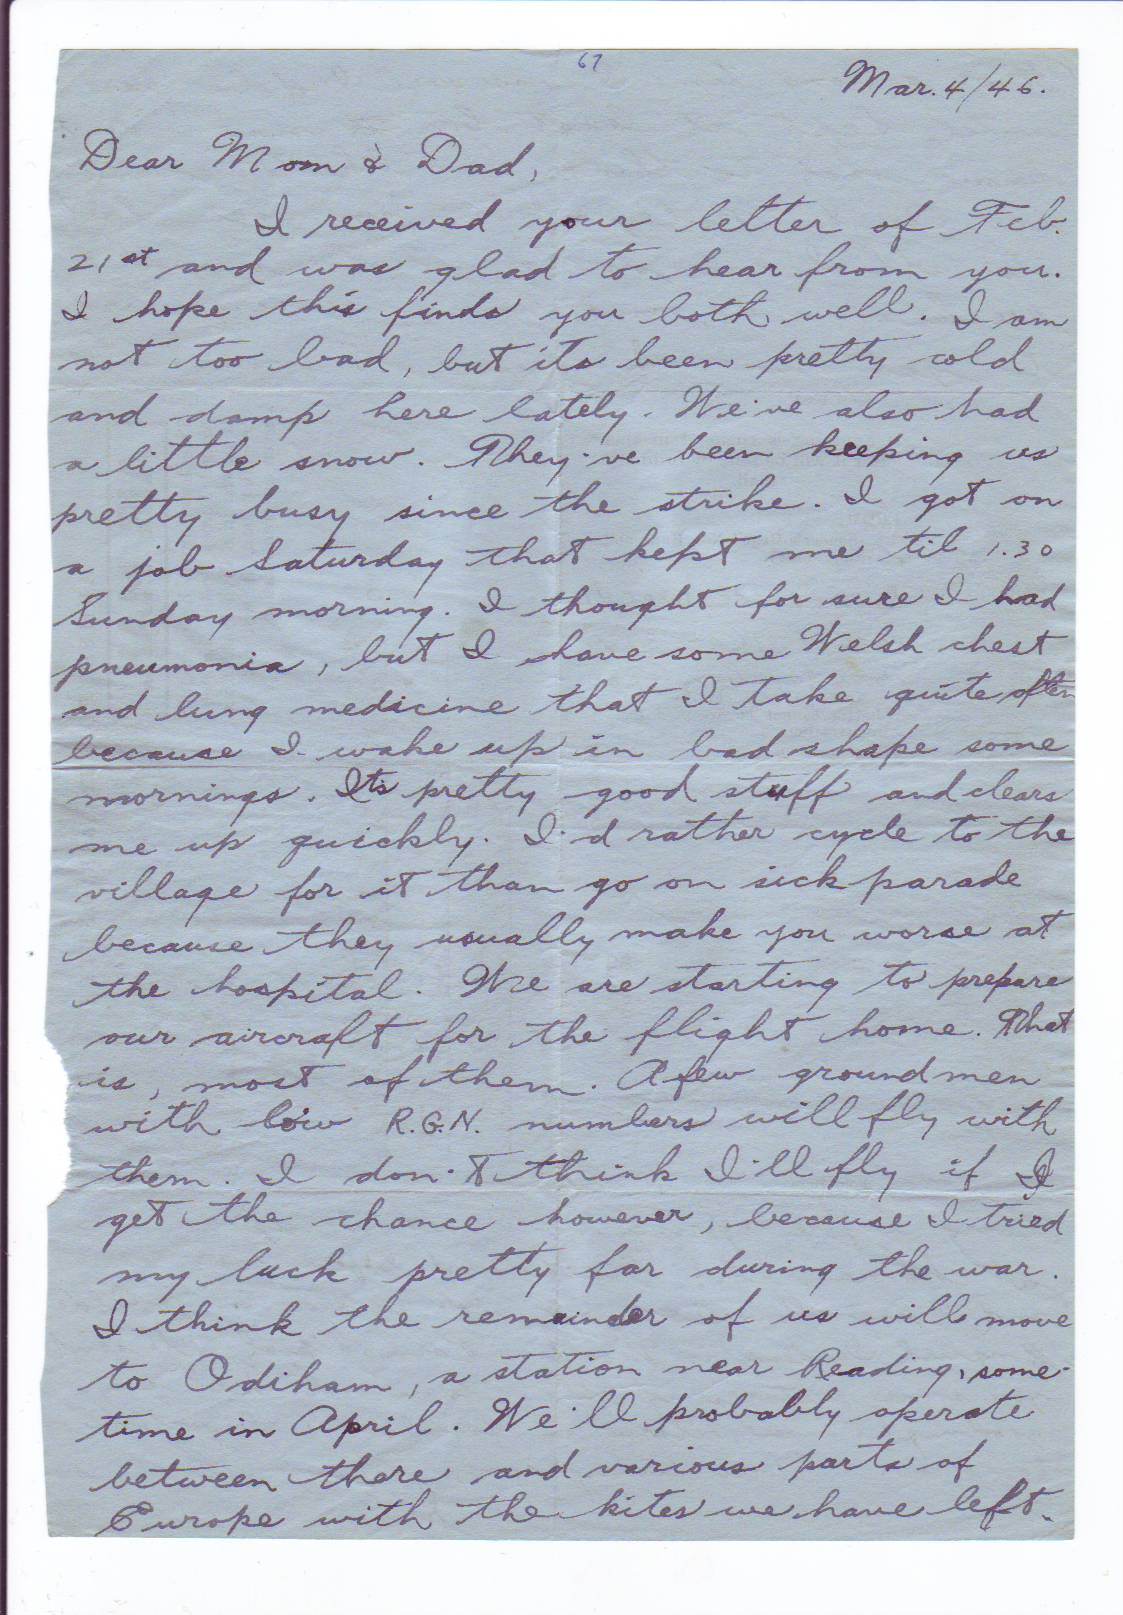 67
Mar. 4/46.
Dear Mom & Dad,
I received your letter of Feb.
21st and was glad to hear from you.
I hope this finds you both well. I am
not too bad, but its been pretty cold
and damp here lately. We've also had
a little snow. They've been keeping us
pretty busy since the strike. I got on
a job Saturday that kept me til 1.30
Sunday morning. I thought for sure I had
pneumonia, but I have some Welsh chest
and lung medicine that I take quite often
because I wake up in bad shape some
mornings. It's pretty good stuff and clears
me up quickly. I'd rather cycle to the
village for it than go on sick parade
because they usually make you worse at
the hospital. We are starting to prepare
our aircraft for the flight home. That
is, most of them. A few groundmen
with low R.G.N. numbers will fly with
them. I don't think I'll fly if I
get the chance however, because I tried
my luck pretty far during the war.
I think the remainder of us will move
to Odiham, a station near Reading, some-
time in April. We'll probably operate
between there and various parts of
Europe with the kites we have left.